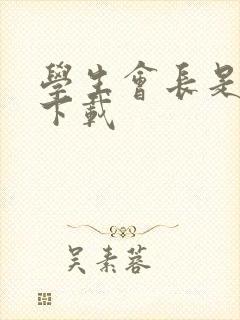 學生會長是
下載
吳素蓉